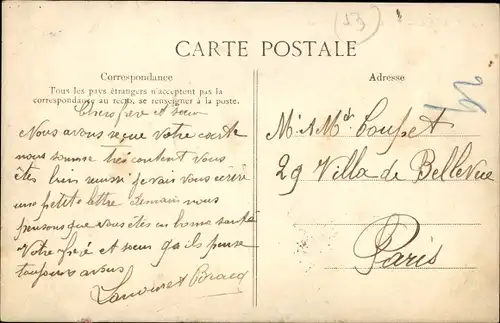 (13)
CARTE POSTALE
Correspondance
Tous les pays étrangers n'acceptent pas la
correspondance au recto, se renseigner à la poste.
Chers frere et seur
Nous avons reçue votre carte
nous somme très content vous
êtes bien reussi je vais vous ecrire
une petite lettre demain nous
pensons que vous êtes en bonne santé
Votre frère et seur qui pense
toujours a vous
Adresse
M. & Mde Coupet
29 Villa de Bellevue
Paris